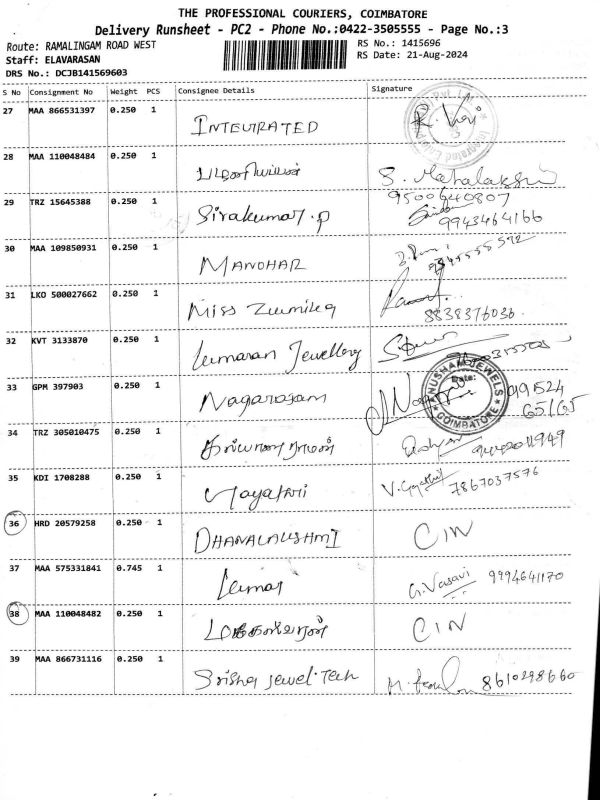 THE PROFESSIONAL COURIERS, COIMBATORE
Delivery Runsheet - PC2 - Phone No.:0422-3505555 - Page No.:3
Route: RAMALINGAM ROAD WEST RS No.: 1415696
Staff: ELAVARASAN RS Date: 21-Aug-2024
DRS No.: DCJB141569603
S No Consignment No Weight PCS Consignee Details Signature
27 MAA 866531397 0.250 1 INTEURATED
28 MAA 110048484 0.250 1 S. Mahalakshmi
9500640807
29 TRZ 15645388 0.250 1 Sivakumar.p 9943464166
30 MAA 109850931 0.250 1 MANOHAR
31 LKO 500027662 0.250 1 Miss Zumikq
8838376036
32 KVT 3133870 0.250 1 Kumaran Jewellery
33 GPM 397903 0.250 1 Nagarajan NUSHAM JEWELS Date: COIMBATORE
34 TRZ 305010475 0.250 1
35 KDI 1708288 0.250 1 Gayathri V. Gayathri 7867037576
36 HRD 20579258 0.250 1 DHANALAKSHMI CIN
37 MAA 575331841 0.745 1 Kumar G. Vasavi 9994641170
38 MAA 110048482 0.250 1 CIN
39 MAA 866731116 0.250 1 Srisha Jewel Tech 8610298660